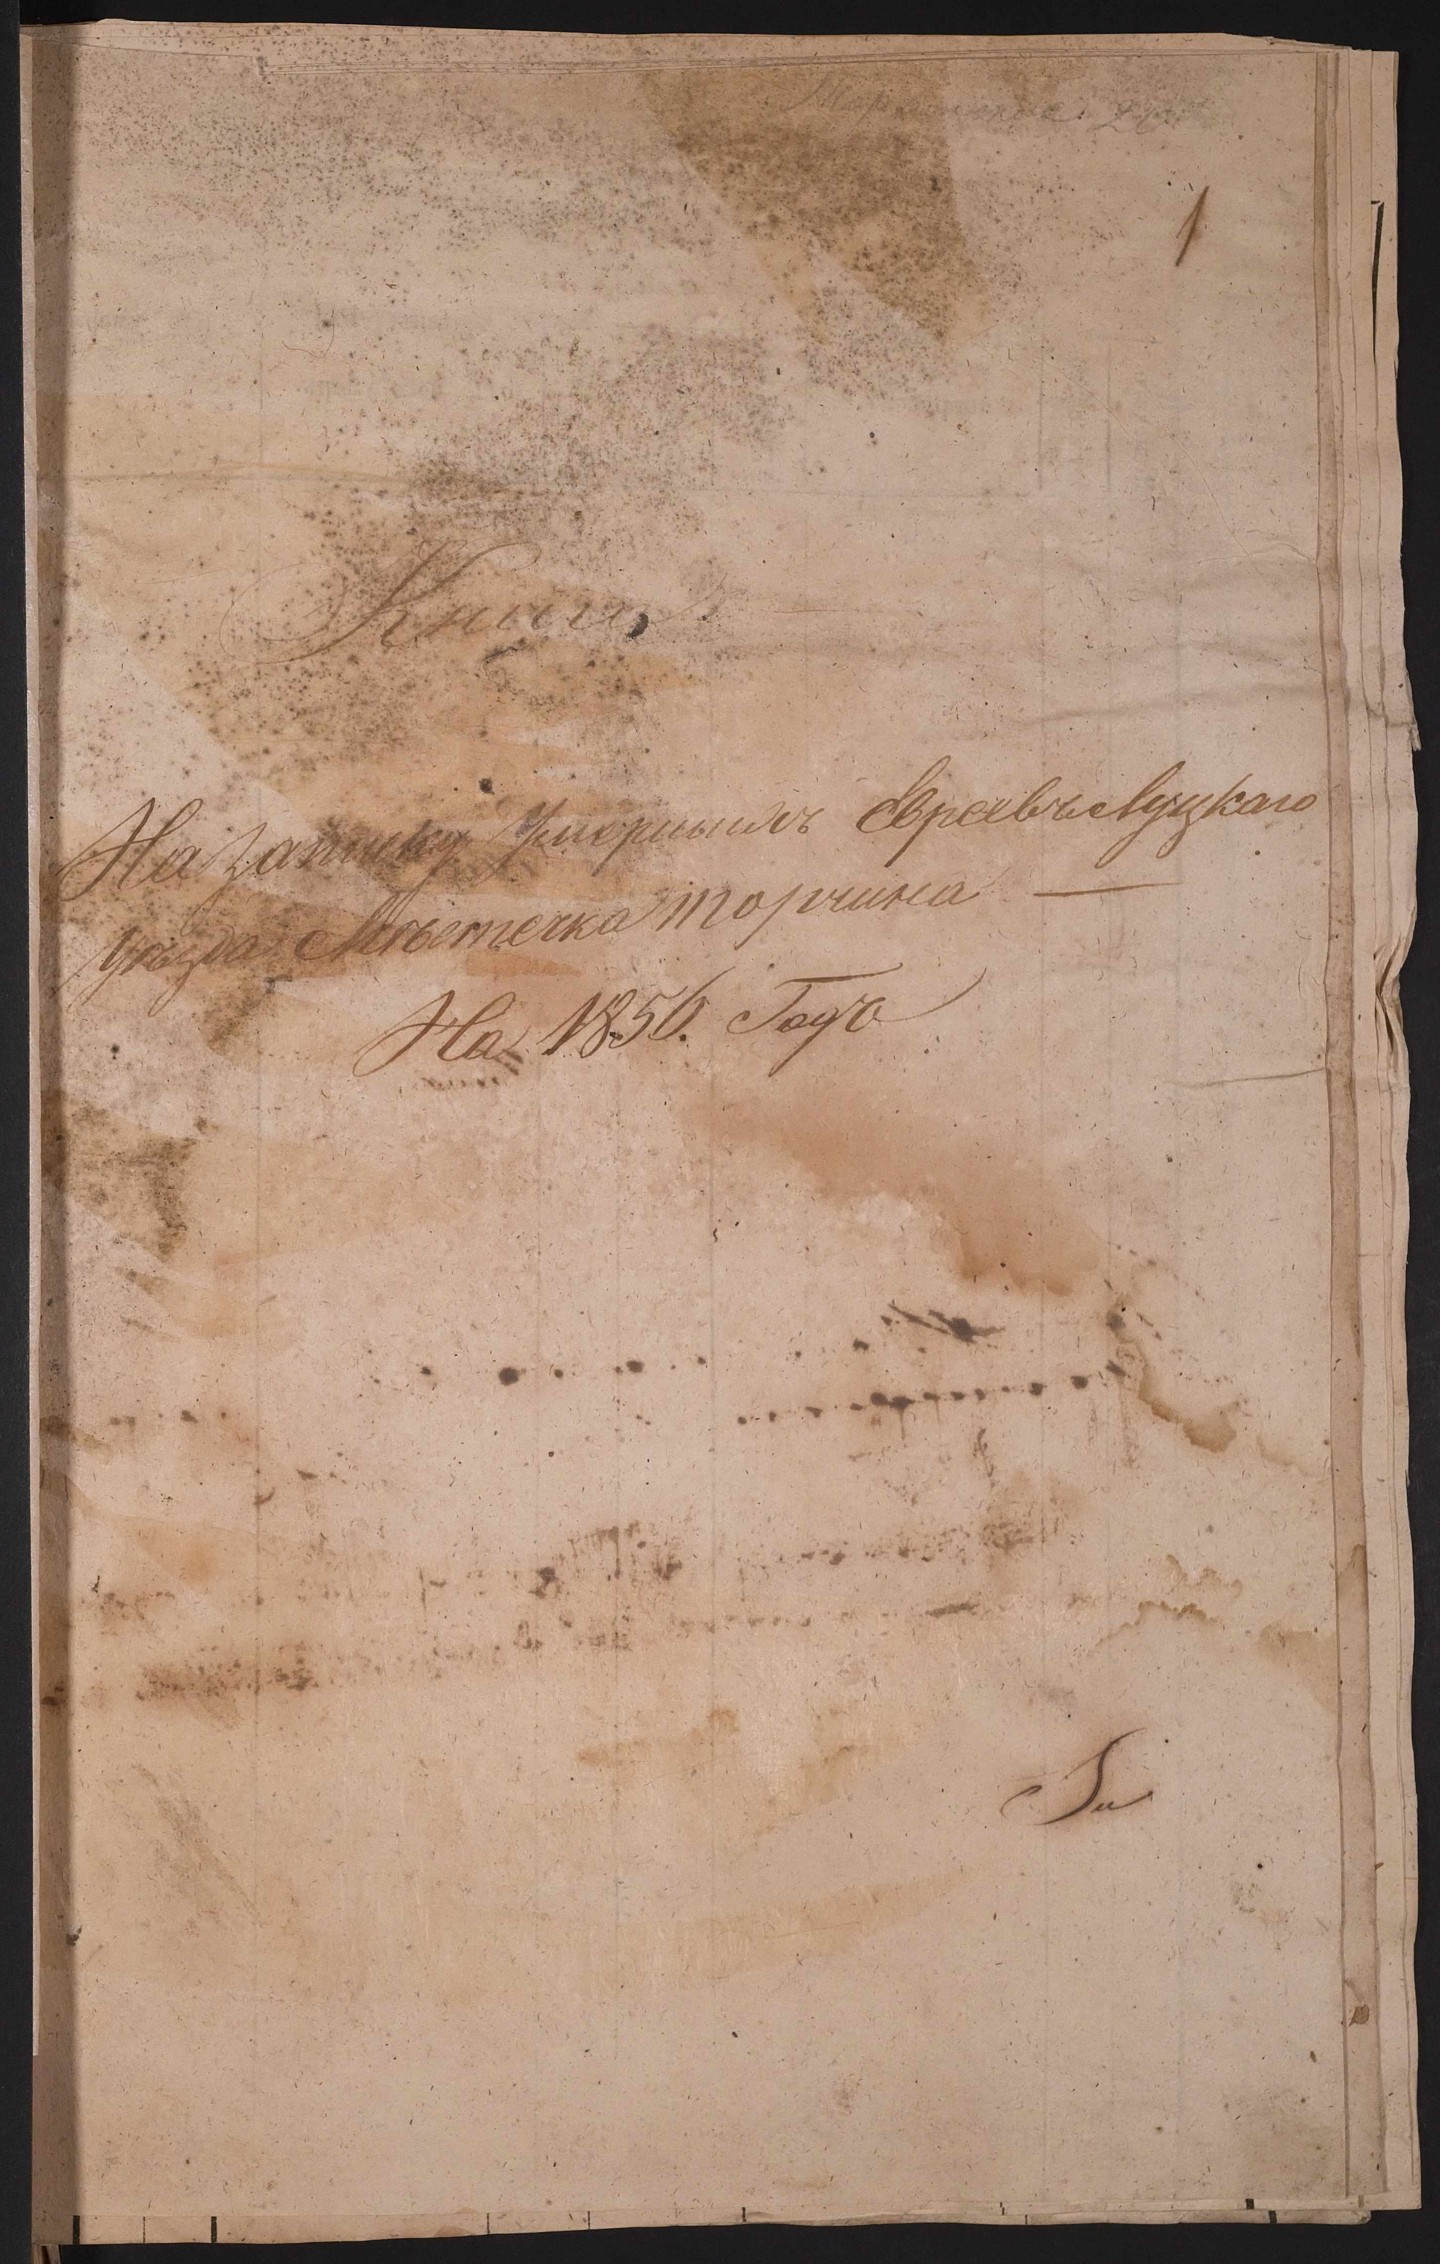 1
Книга
На записку умершихъ Евреевъ Луцкаго
уезда Местечка Торчина
На 1856. Годъ